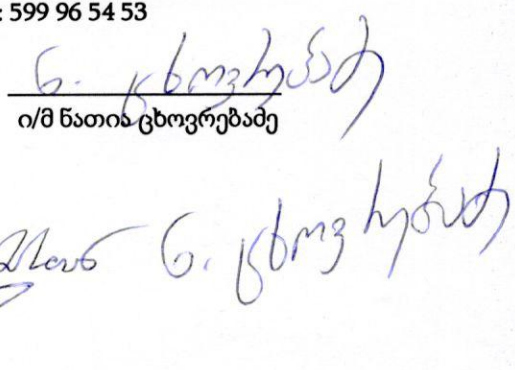 : 599 96 54 53
ნ. ცხოვრებაძე
ი/მ ნათია ცხოვრებაძე
ნ. ცხოვრებაძე